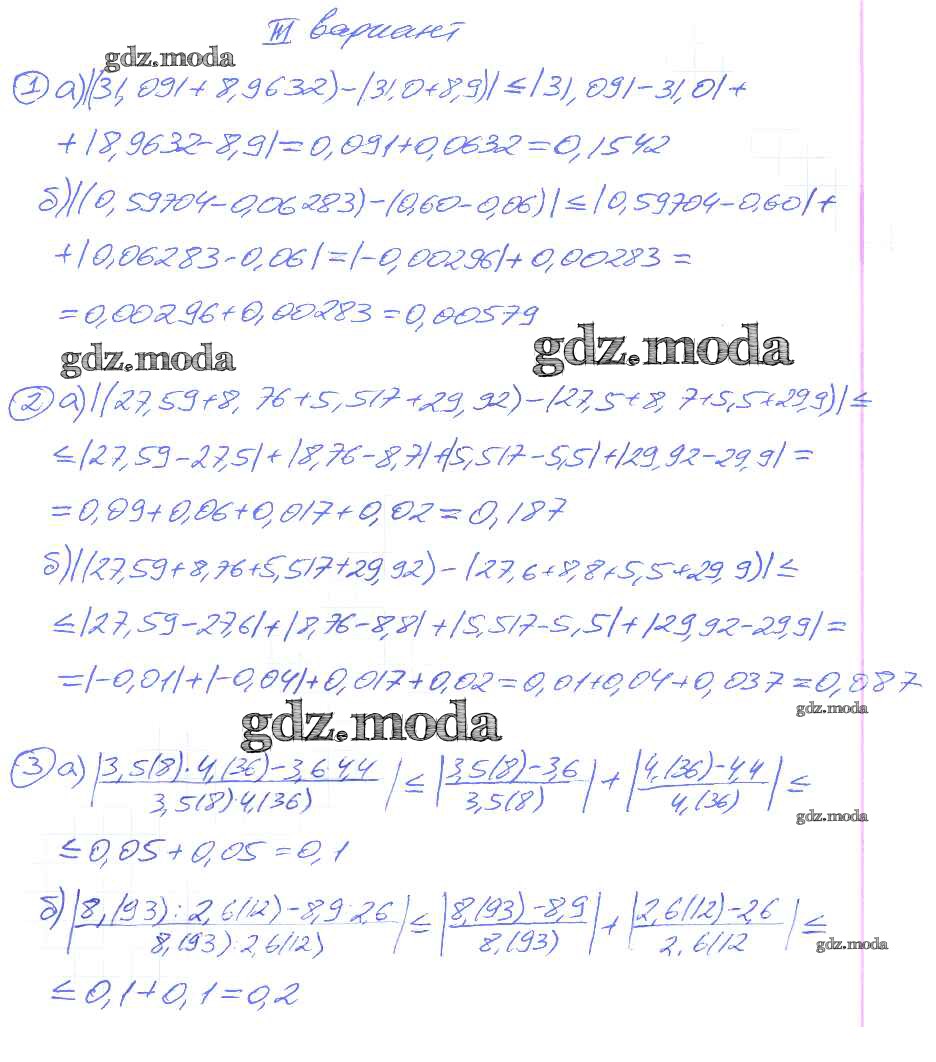 III вариант
gdz.moda
① а) |(31,091 + 8,9632) - (31,0 + 8,9)| ≤ |31,091 - 31,0| +
+ |8,9632 - 8,9| = 0,091 + 0,0632 = 0,1542
б) |(0,59704 - 0,06283) - (0,60 - 0,06)| ≤ |0,59704 - 0,60| +
+ |0,06283 - 0,06| = |-0,00296| + 0,00283 =
= 0,00296 + 0,00283 = 0,00579
gdz.moda gdz.moda
② а) |(27,59 + 8,76 + 5,517 + 29,92) - (27,5 + 8,7 + 5,5 + 29,9)| ≤
≤ |27,59 - 27,5| + |8,76 - 8,7| + |5,517 - 5,5| + |29,92 - 29,9| =
= 0,09 + 0,06 + 0,017 + 0,02 = 0,187
б) |(27,59 + 8,76 + 5,517 + 29,92) - (27,6 + 8,8 + 5,5 + 29,9)| ≤
≤ |27,59 - 27,6| + |8,76 - 8,8| + |5,517 - 5,5| + |29,92 - 29,9| =
= |-0,01| + |-0,04| + 0,017 + 0,02 = 0,01 + 0,04 + 0,037 = 0,087
gdz.moda
gdz.moda
③ а) |(3,5(8) · 4,(36) - 3,6 · 4,4) / (3,5(8) · 4,(36))| ≤ |(3,5(8) - 3,6) / 3,5(8)| + |(4,(36) - 4,4) / 4,(36)| ≤
gdz.moda
≤ 0,05 + 0,05 = 0,1
б) |(8,(93) : 2,6(12) - 8,9 : 2,6) / (8,(93) : 2,6(12))| ≤ |(8,(93) - 8,9) / 8,(93)| + |(2,6(12) - 2,6) / 2,6(12| ≤
gdz.moda
≤ 0,1 + 0,1 = 0,2